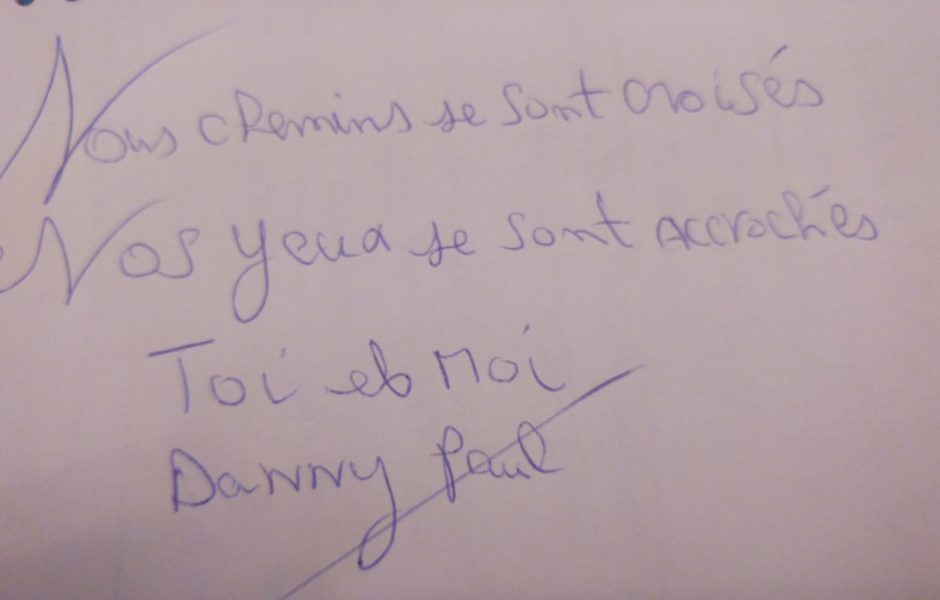 Nous chemins se sont croisés
Nos yeux se sont accrochés
Toi et Moi
Danny Paul